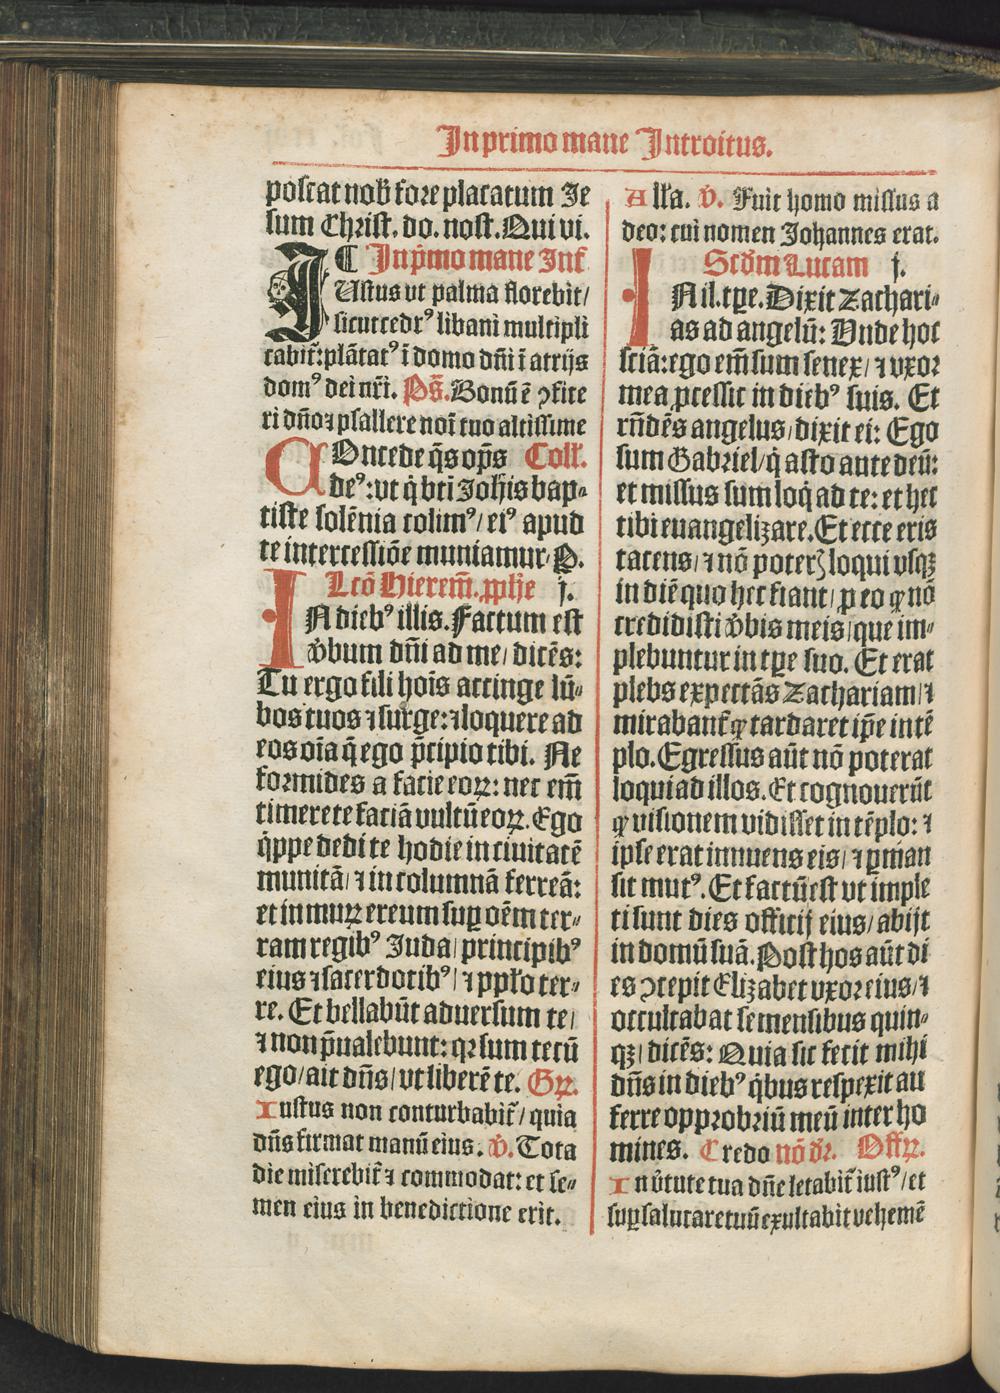 In primo mane Introitus.
poscat nob̄ fore placatum Je
sum Christ. do. nost. Qui vi.
¶ In p̄mo mane Int̄
IUstus ut palma florebit/
sicut cedrꝰ libani multipli
cabit̃: plãtatꝰ ĩ domo dñi ĩ atrijs
domꝰ dei nr̃i. Ps̄. Bonũ ẽ ꝯfite
ri dño ⁊ psallere noĩ tuo altissime
COncede q̄s op̄s Coll̃.
deꝰ: ut q̇ bt̃i Joh̃is bap⸗
tiste solẽnia colimꝰ/ eiꝰ apud
te intercessiõe muniamur. P.
Lcõ Hierem̃. ꝓph̃e j.
IN diebꝰ illis. Factum est
v̓bum dñi ad me/ dicẽs:
Tu ergo fili hoĩs accinge lũ⸗
bos tuos ⁊ surge: ⁊ loquere ad
eos oĩa q̄ ego p̄cipio tibi. Ne
formides a facie eoꝝ: nec em̃
timere te faciã vultũ eoꝝ. Ego
q̇ppe dedi te hodie in ciuitatẽ
munitã/ ⁊ in columnã ferreã:
et in muꝝ ereum suꝑ oẽm ter⸗
ram regibꝰ Juda/ principibꝰ
eius ⁊ sacerdotibꝰ/ ⁊ ppl̃o ter⸗
re. Et bellabũt aduersum te/
⁊ non p̄ualebunt: qꝛ sum tecũ
ego/ ait dñs/ ut liberẽ te. Gꝝ.
Iustus non conturbabit̃/ quia
dñs firmat manũ eius. v̓. Tota
die miserebit̃ ⁊ commodat: et se⸗
men eius in benedictione erit.
All̃a. v̓. Fuit homo missus a
deo: cui nomen Johannes erat.
Scd̓m Lucam j.
IN il. tꝑe. Dixit Zachari⸗
as ad angelũ: Unde hoc
sciã: ego em̃ sum senex/ ⁊ vxor
mea ꝓcessit in diebꝰ suis. Et
rñdẽs angelus/ dixit ei: Ego
sum Gabriel/ q̇ asto ante deũ:
et missus sum loq̇ ad te: et hec
tibi euangelizare. Et ecce eris
tacens/ ⁊ nõ poterꝭ loqui vsqꝫ
in diẽ quo hec fiant/ ꝓ eo ꝙ nõ
credidisti v̓bis meis/ que im⸗
plebuntur in tꝑe suo. Et erat
plebs expectãs Zachariam/ ⁊
mirabant̃ ꝙ tardaret ip̃e in tẽ
plo. Egressus aũt nõ poterat
loqui ad illos. Et cognouerũt
ꝙ visionem vidisset in tẽplo: ⁊
ipse erat innuens eis/ ⁊ ꝑman
sit mutꝰ. Et factũ est ut imple
ti sunt dies officij eius/ abijt
in domũ suã. Post hos aũt di
es ꝯcepit Elizabet vxor eius/ ⁊
occultabat se mensibus quin⸗
qꝫ/ dicẽs: Quia sic fecit mihi
dñs in diebꝰ q̇bus respexit au
ferre opprobriũ meũ inter ho
mines. Credo nõ dr̃. Offꝝ.
In v̓tute tua dñe letabit̃ iustꝰ/ et
suꝑ salutare tuũ exultabit vehemẽ